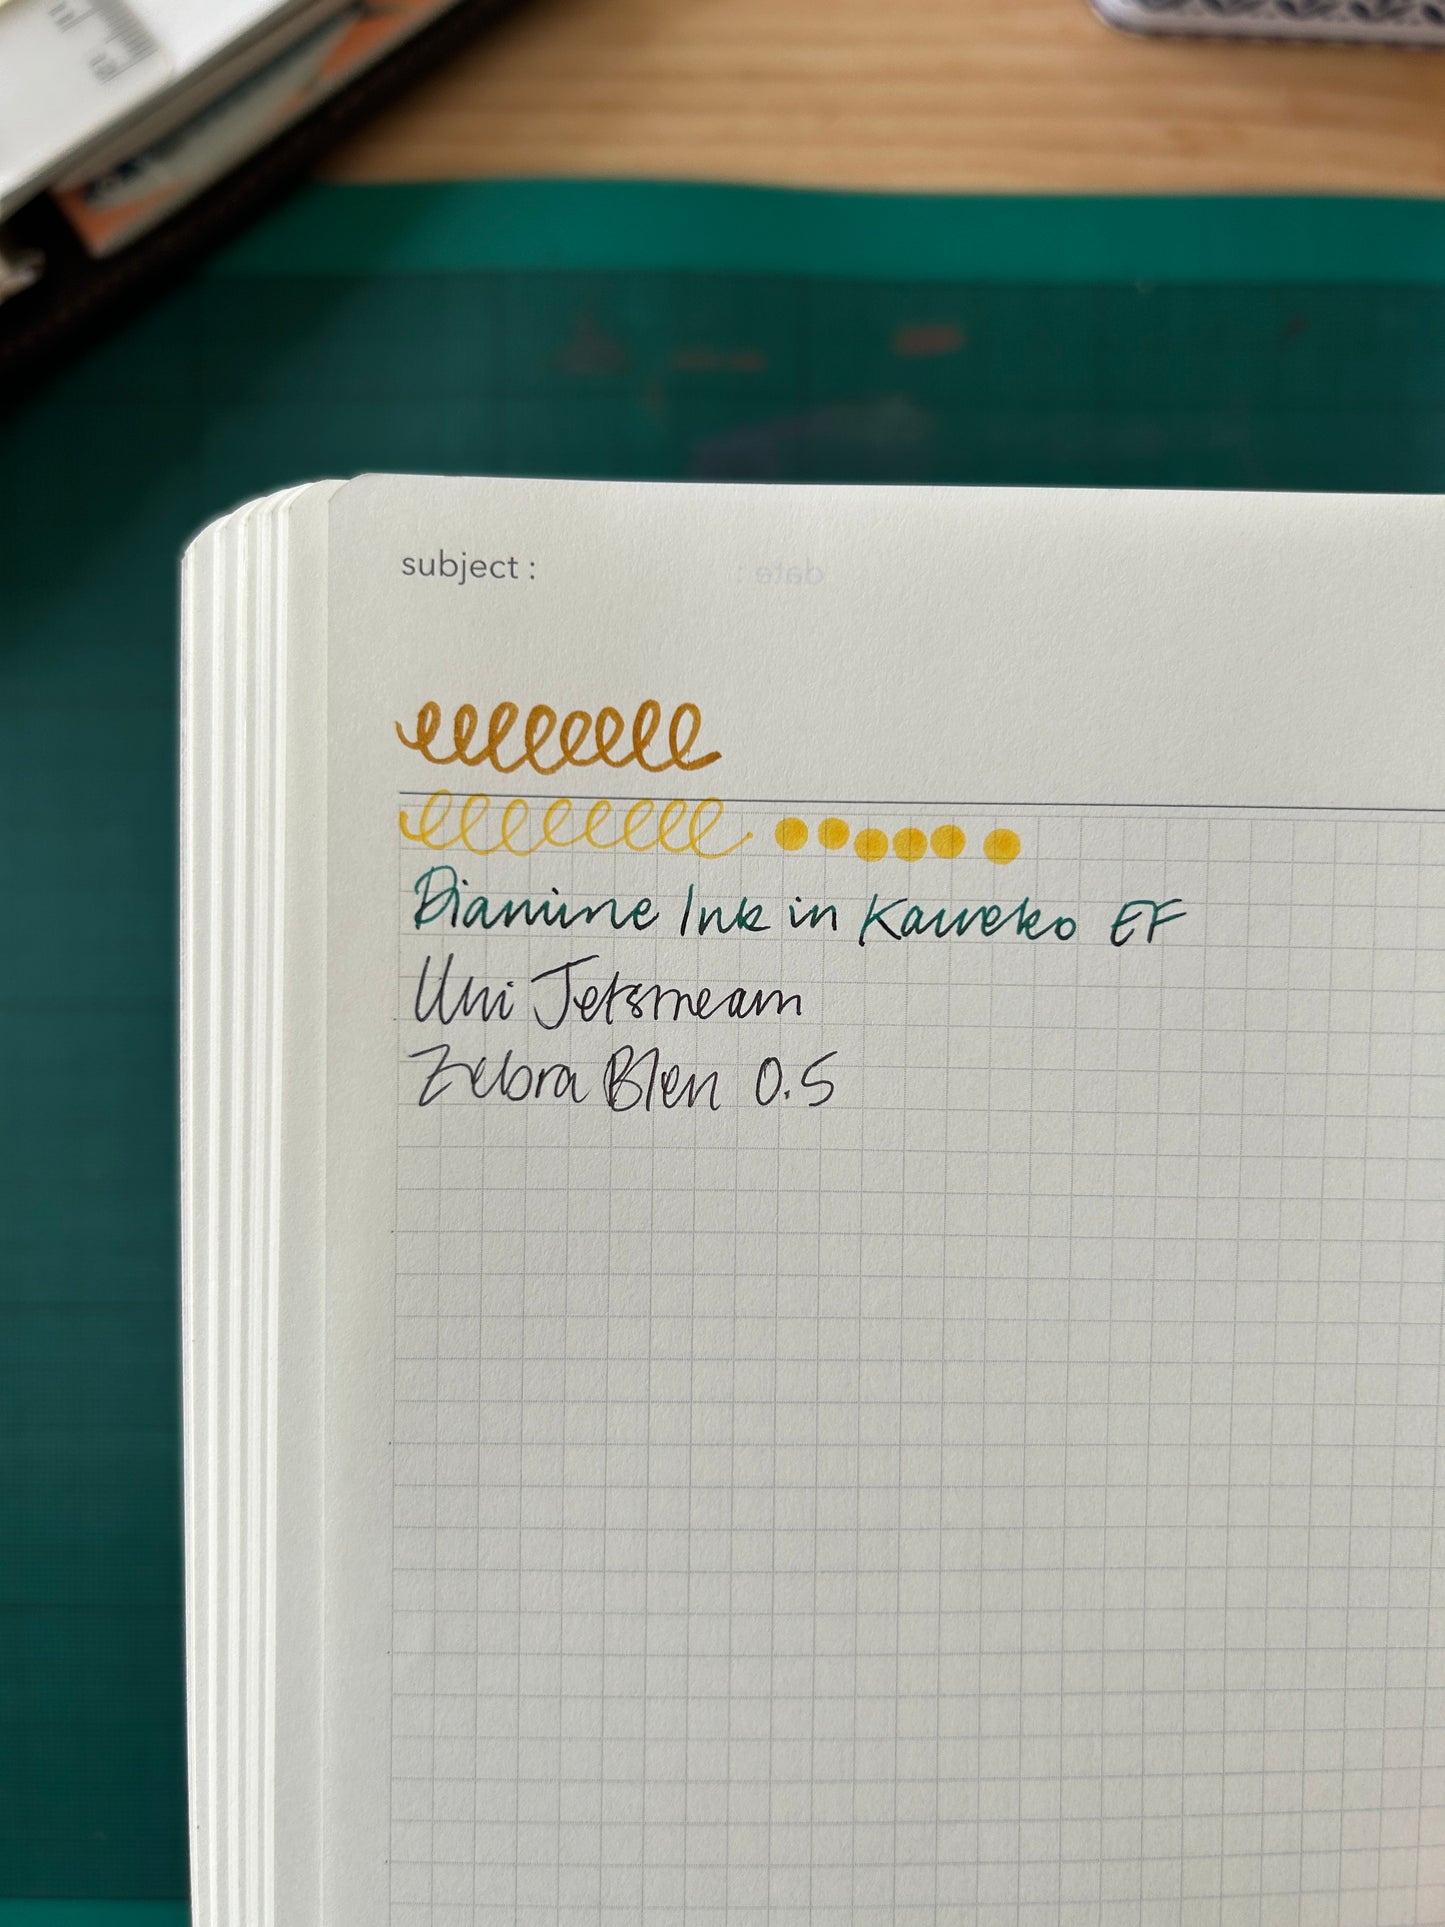 11
12
subject :
date :
Diamine Ink in Kaweko EF
Uni Jetsmeam
Zebra Blen 0.5